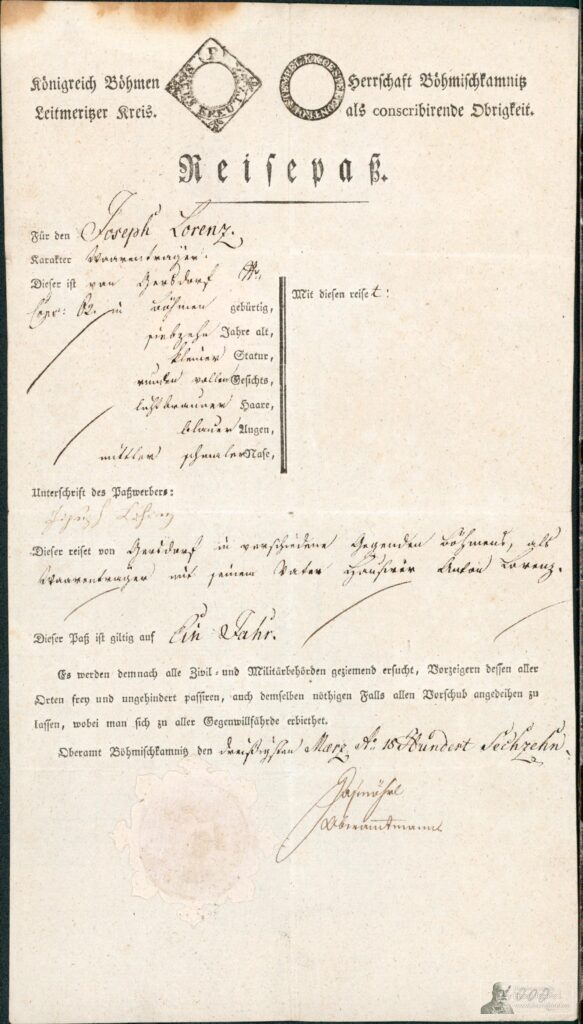 Königreich Böhmen
Leitmeritzer Kreis.
P
SECHS
KREUTZ
STEMPEL
Herrschaft Böhmischkamnitz
als conscribirende Obrigkeit.
Reisepaß.
Für den Joseph Lorenz.
Karakter Waarenträger.
Dieser ist von Gersdorf
in Böhmen gebürtig,
siebzehn Jahre alt,
kleiner Statur,
runden vollen Gesichts,
lichtbrauner Haare,
blauer Augen,
mittler schmaler Nase,
Mit diesen reiset:
Unterschrift des Paßwerbers:
Joseph Lorenz
Dieser reiset von Gersdorf in verschiedene Gegenden Böhmens, als
Waarentrager mit seinem Vater Hausirer Anton Lorenz.
Dieser Paß ist giltig auf Ein Jahr.
Es werden demnach alle Zivil- und Militärbehörden geziemend ersucht, Vorzeigern dessen aller
Orten frey und ungehindert passiren, auch demselben nöthigen Falls allen Vorschub angedeihen zu
lassen, wobei man sich zu aller Gegenwillfährde erbiethet.
Oberamt Böhmischkamnitz den dreißigsten Merz Hundert Sechzehn.
Oberamtmann